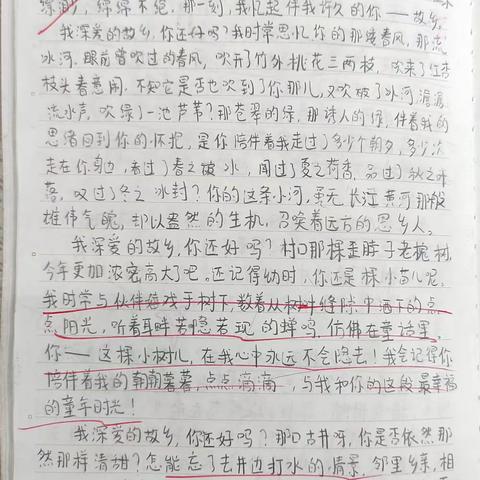 绵绵不绝。那一刻,我忆起伴我许久的你——故乡。
我深爱的故乡,你还好吗?我时常思忆你的那缕春风,那流
冰河。眼前曾吹过的春风,吹开了竹外桃花三两枝,吹来了红杏
枝头春意闹。不知它是否也吹到了你那儿,又吹破了冰河,潺潺
流水声,吹绿了一池芦苇?那苍翠的绿,那诗人的绿,伴着我的
思绪回到你的怀抱,是你陪伴着我走过了多少个朝夕,多少次
走在你身边,看过了春之破冰,闻过了夏之荷香,品过了秋之叶
落,叹过了冬之冰封?你的这条小河,虽无长江黄河那般
雄伟气魄,却以盎然的生机,召唤着远方的思乡人。
我深爱的故乡,你还好吗?村口那棵歪脖子老槐树,
今年更加浓密高大了吧。还记得幼时,你还是棵小苗儿呢。
我时常与伙伴嬉戏于树下,数着从树叶缝隙中洒下的点
点阳光,听着耳畔若隐若现的蝉鸣,仿佛在童话里。
你——这棵小树儿,在我心中永远不会隐去!我会记得你
陪伴着我的朝朝暮暮,点点滴滴,与我和你的这段最幸福
的童年时光!
我深爱的故乡,你还好吗?那口古井呀,你是否依然那
然那样清甜?怎能忘了去井边打水的情景,邻里乡亲,相